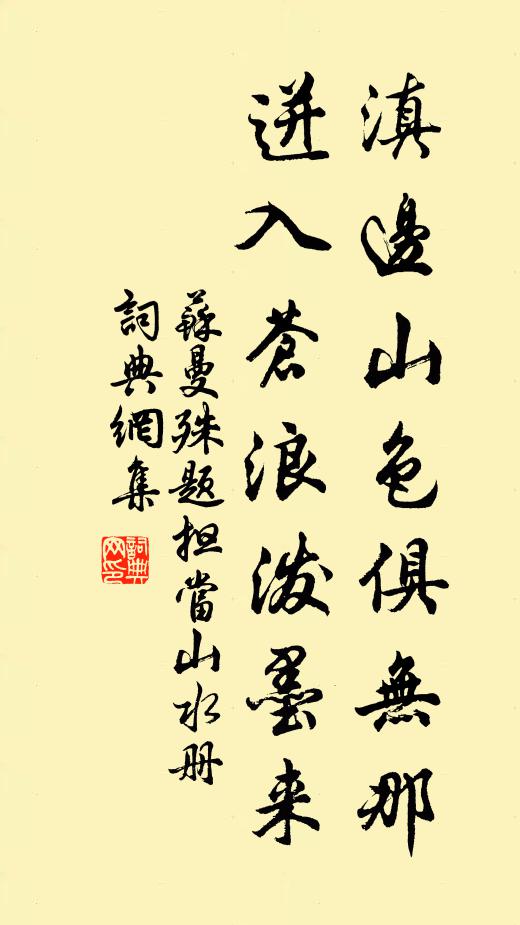 滇邊山色俱無那
迸入蒼浪潑墨来
蘇曼殊題担當山水册
詞典網集
詞典網印